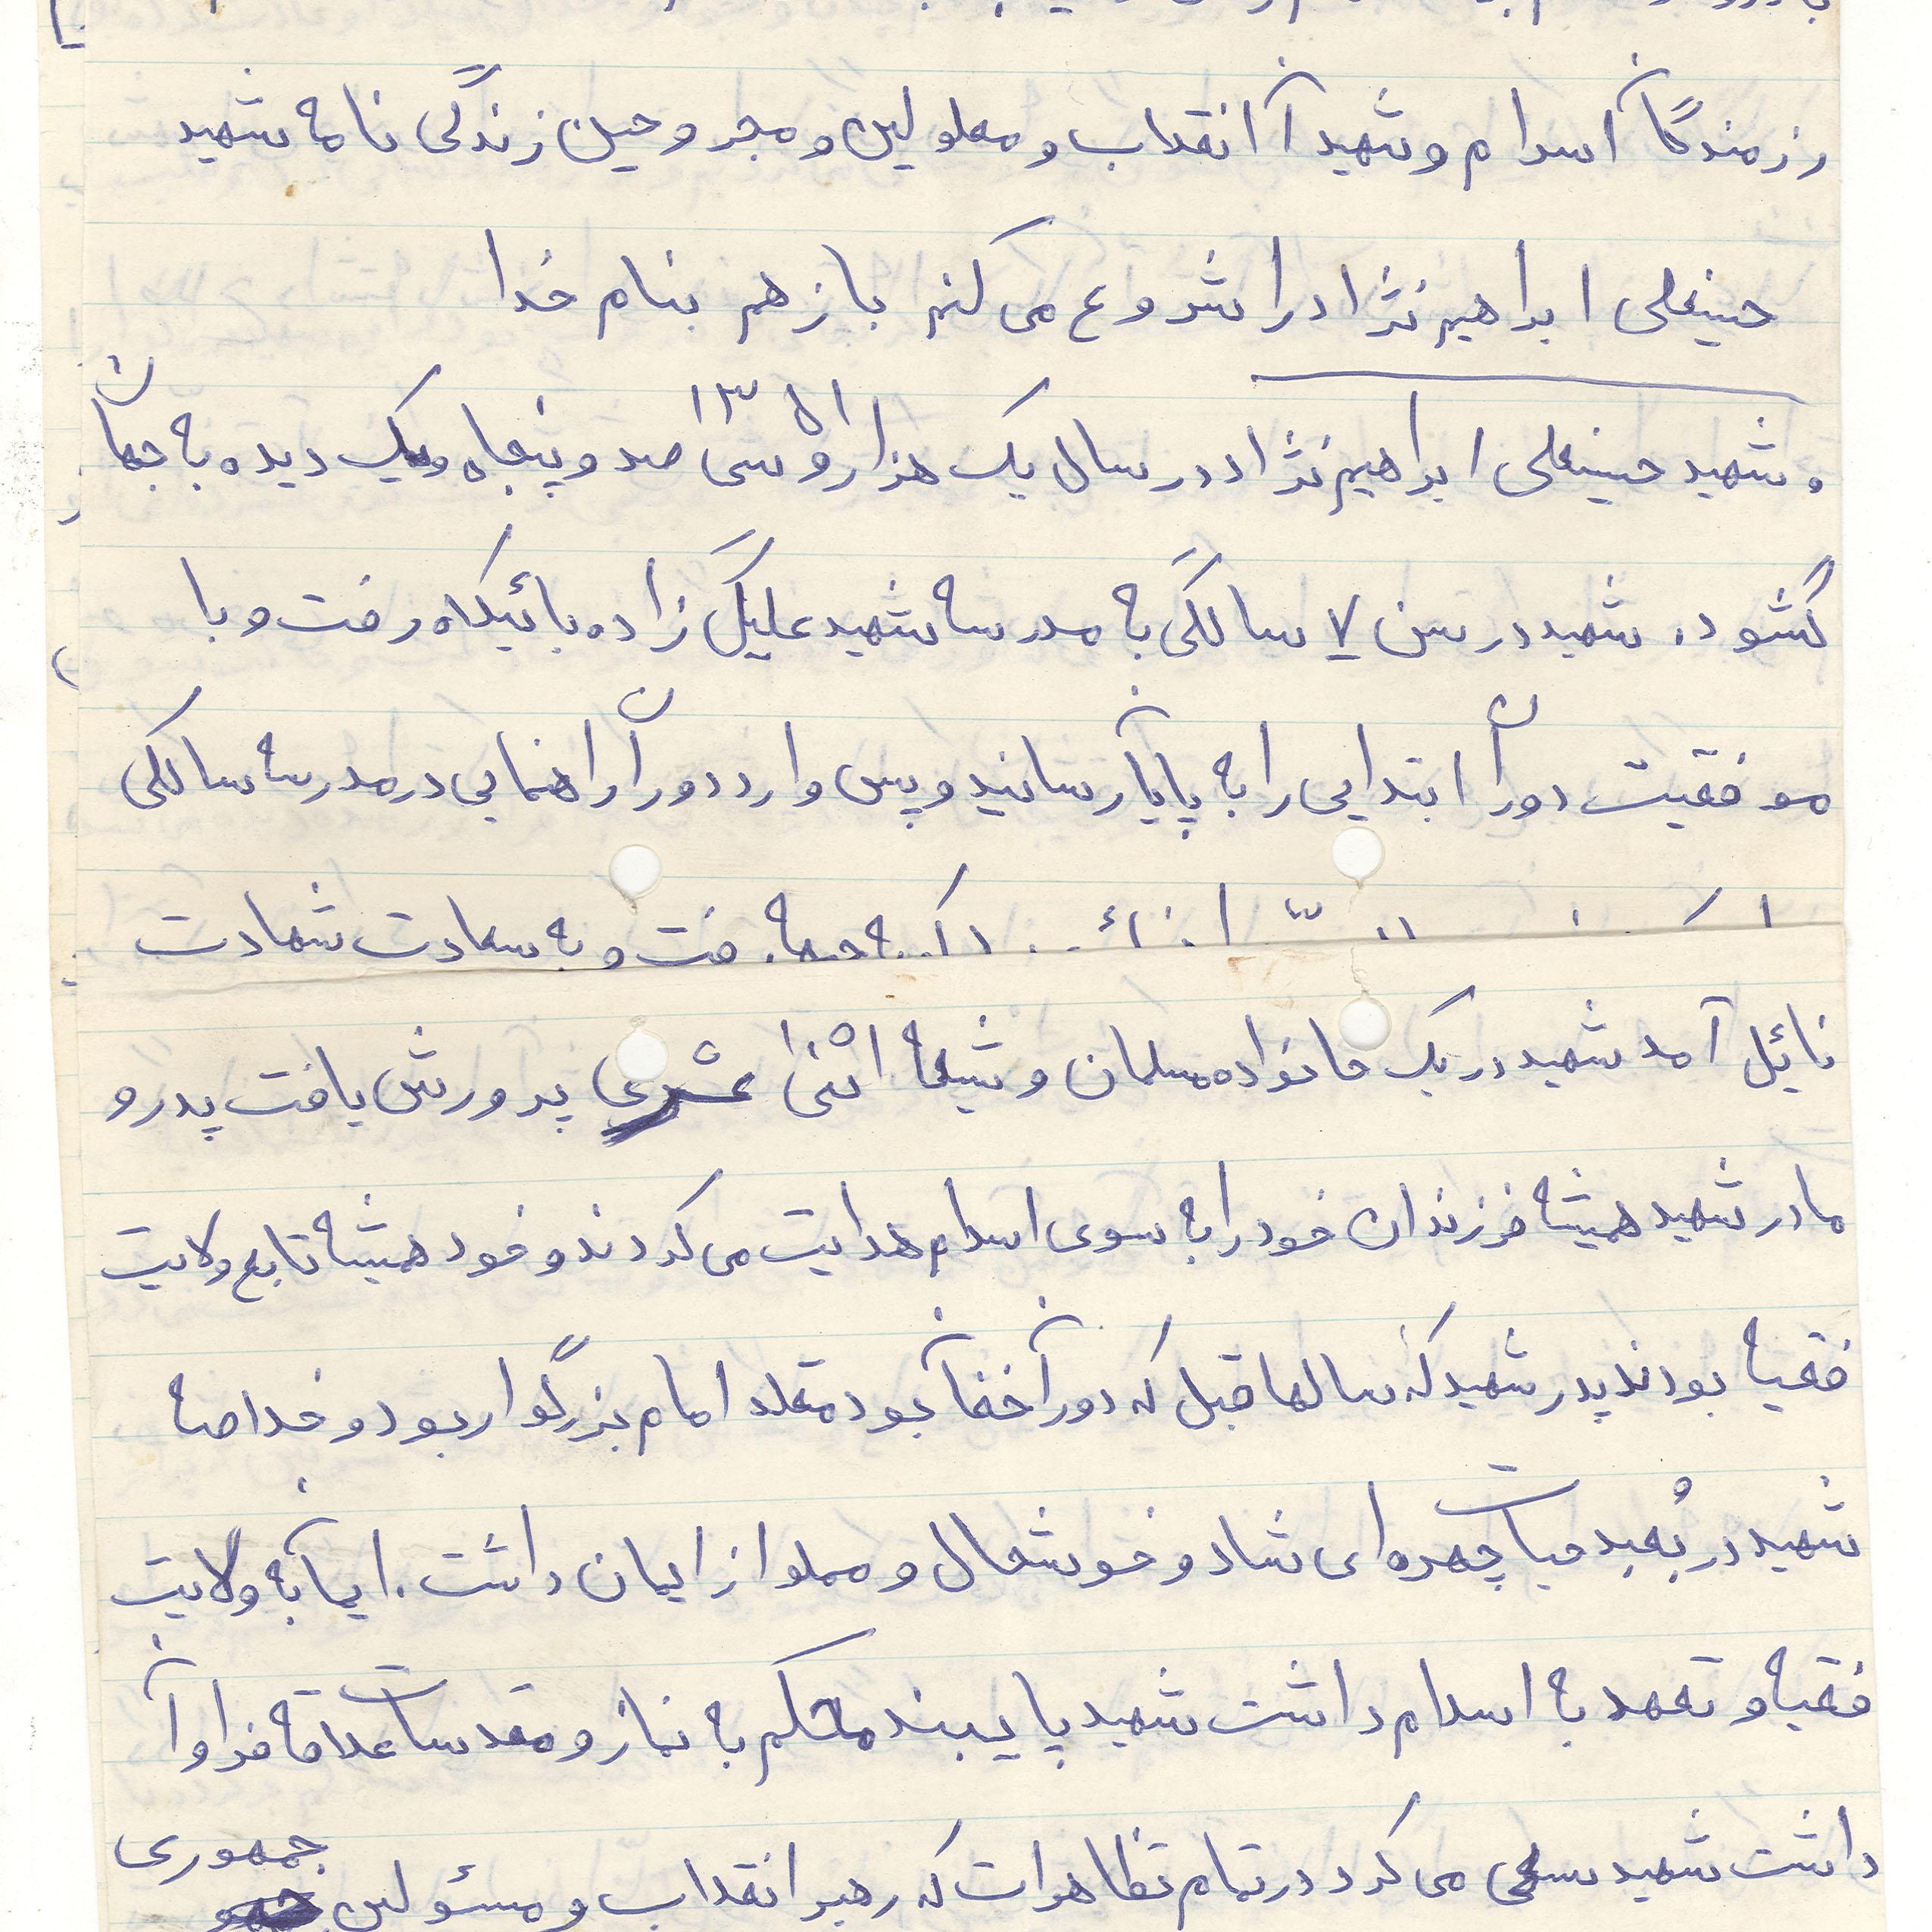 رزمندگان اسلام و شهیدان انقلاب و معلولین و مجروحین زندگی نامه شهید
حسینعلی ابراهیم نژاد را شروع می کنم باز هم بنام خدا
۱۳۵۱
و شهید حسینعلی ابراهیم نژاد در سال یک هزار و سی صد و پنجاه و یک دیده به جهان
گشود. شهید در سن ۷ سالگی به مدرسه شهید علیگل زاده بائیکلاه رفت و با
موفقیت دوران ابتدایی را به پایان رسانید و پس وارد دوران راهنمایی در مدرسه سالکی
رفت و به سعادت شهادت
نائیل آمد شهید در یک خانواده مسلمان و شیعه اثنی عشری پرورش یافت پدر و
مادر شهید همیشه فرزندان خود را به سوی اسلام هدایت می کردند و خود همیشه تابع ولایت
فقیه بودند پدر شهید که سالها قبل که دوران خفقان بود مقلد امام بزرگوار بود و خلاصه
شهید در بُعد حیات چهره ای شاد و خوشحال و مملو از ایمان داشت. ایمان به ولایت
فقیه و تعهد به اسلام داشت شهید پایبند محکم به نماز و مقدسات علاقه فراوان
داشت شهید سعی می کرد در تمام تظاهرات که رهبر انقلاب و مسئولین جمهوری